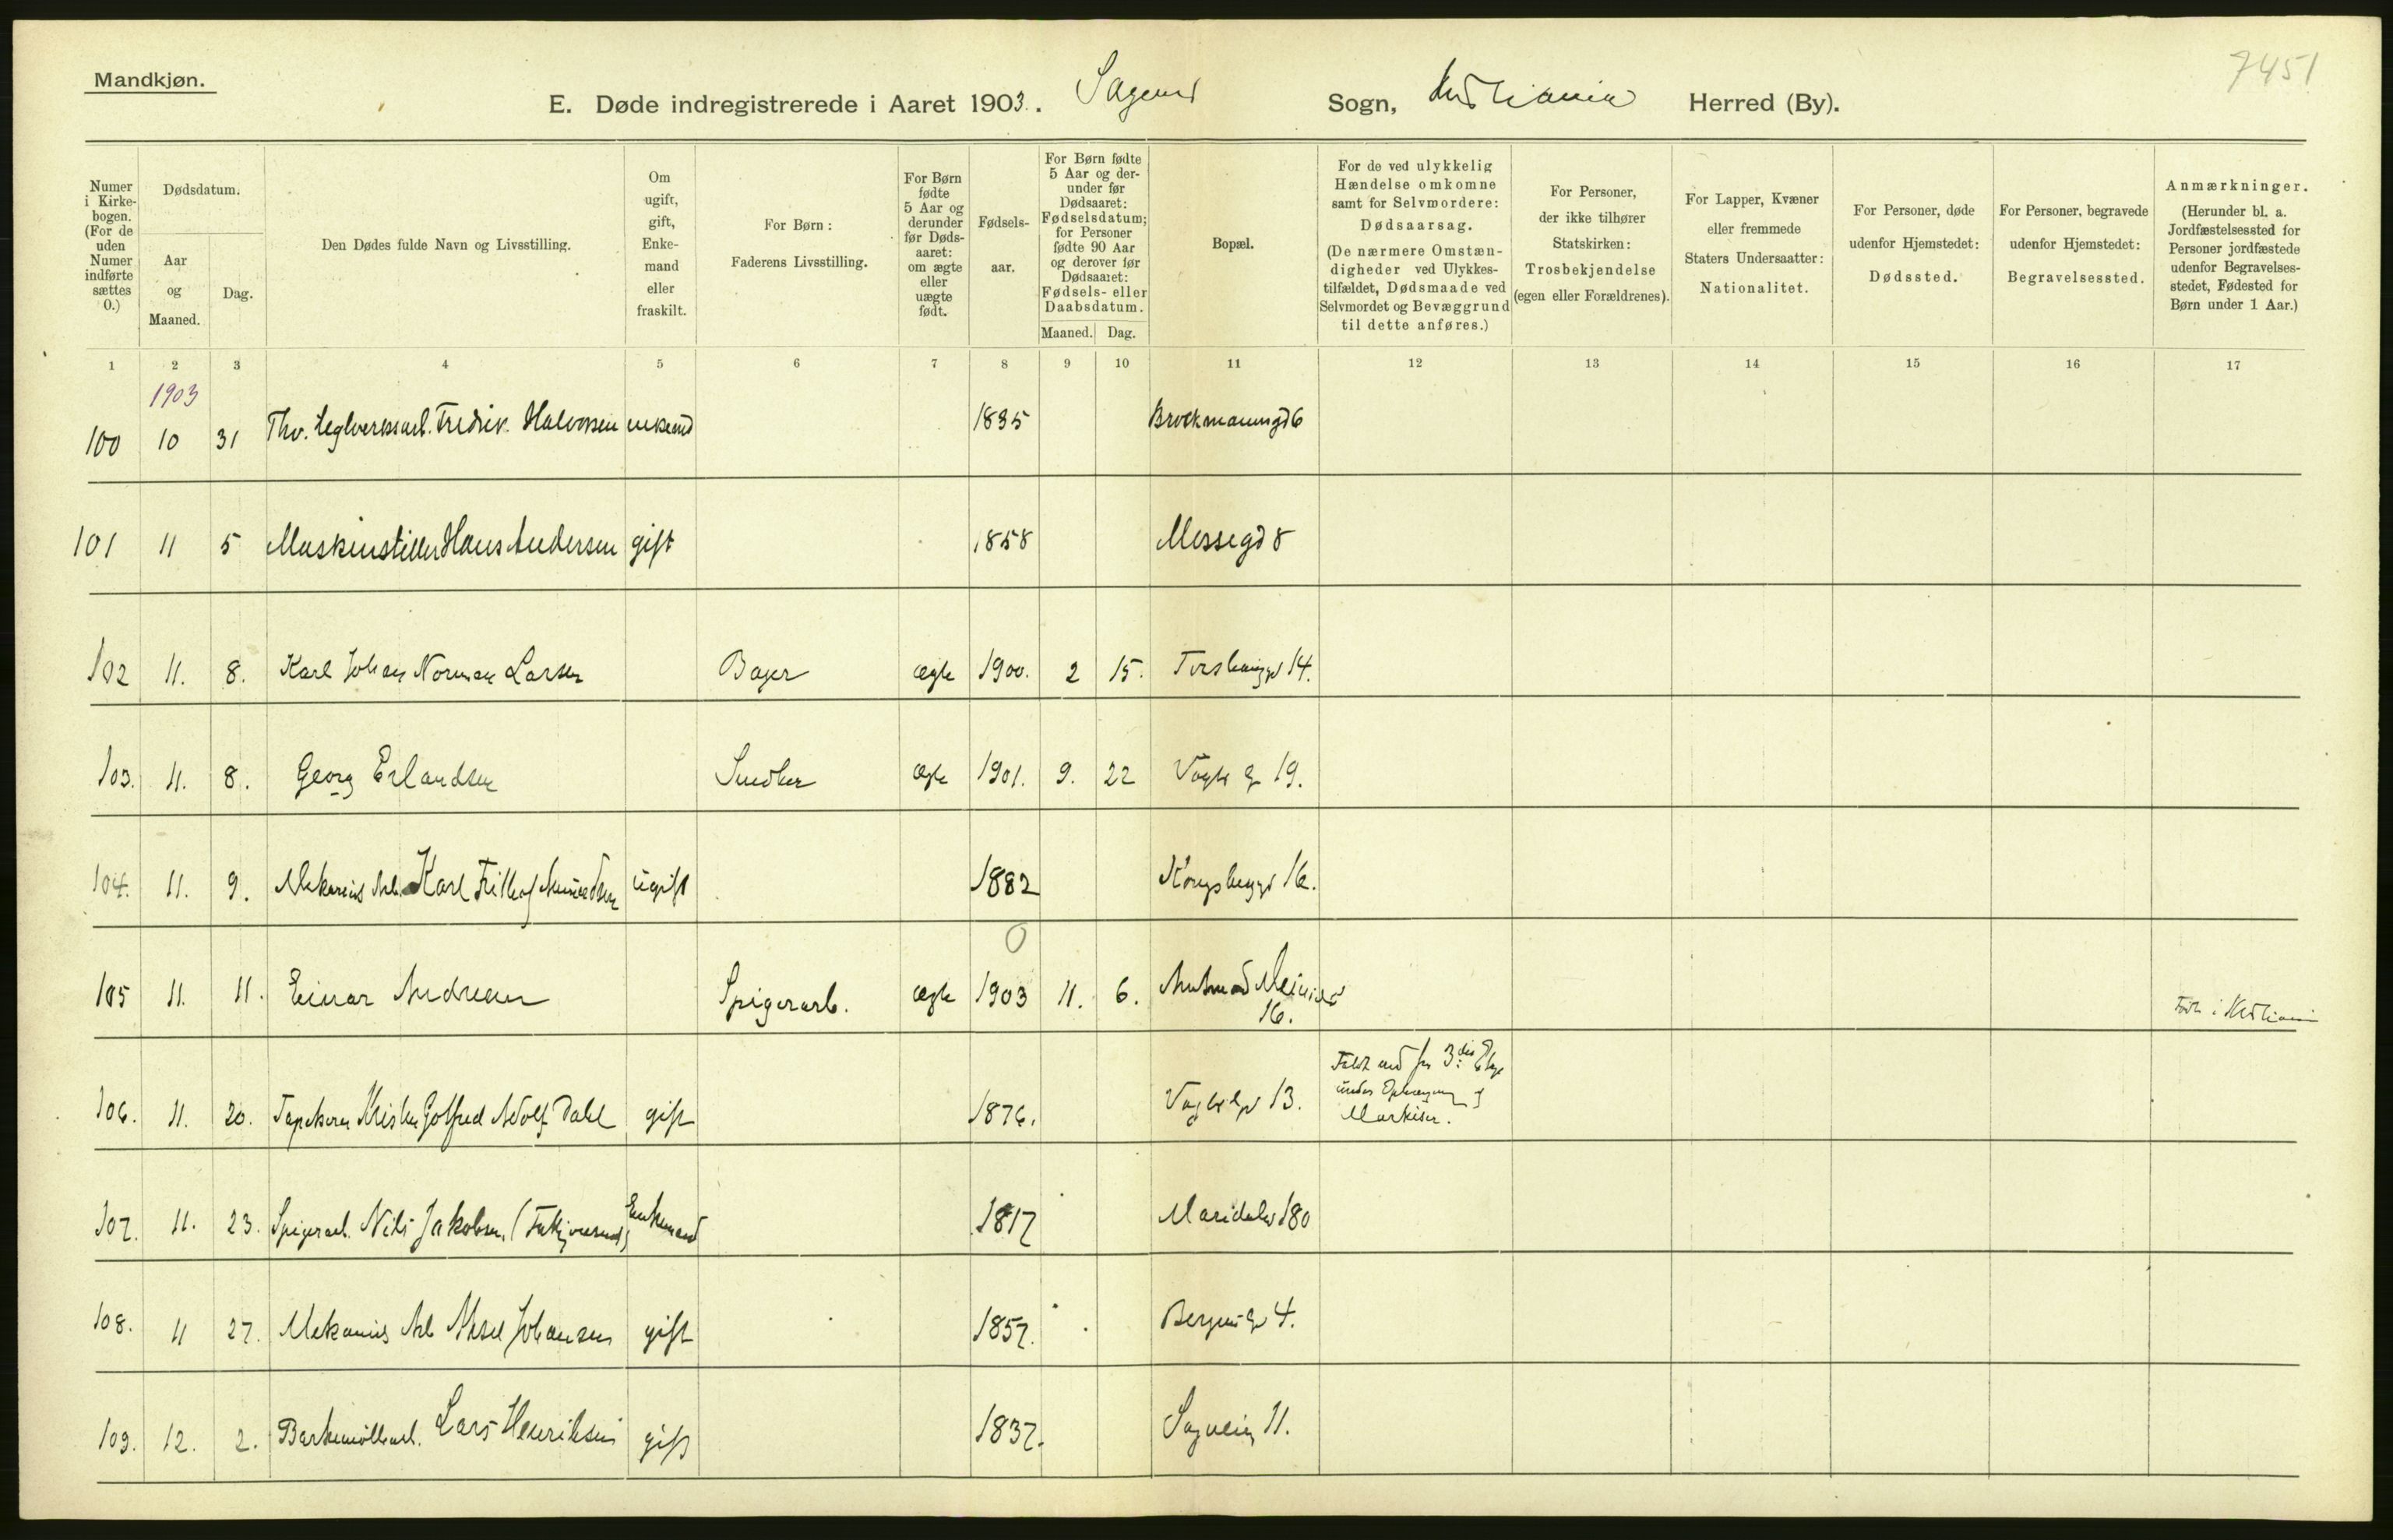 7451
Mandkjøn.
E. Døde indregistrerede i Aaret 1903. Sagenes Sogn, Kristiania Herred (By).
Numer i Kirkebogen. (For de uden Numer indførte sættes 0.)
Dødsdatum.
Aar og Maaned.
Dag.
Den Dødes fulde Navn og Livsstilling.
Om ugift, gift, Enkemand eller fraskilt.
For Børn: Faderens Livsstilling.
For Børn fødte 5 Aar og derunder før Dødsaaret: om ægte eller uægte født.
Fødselsaar.
For Børn fødte 5 Aar og derunder før Dødsaaret: Fødselsdatum; for Personer fødte 90 Aar og derover før Dødsaaret: Fødsels- eller Daabsdatum.
Maaned. Dag.
Bopæl.
For de ved ulykkelig Hændelse omkomne samt for Selvmordere: Dødsaarsag. (De nærmere Omstændigheder ved Ulykkestilfældet, Dødsmaade ved Selvmordet og Bevæggrund til dette anføres.)
For Personer, der ikke tilhører Statskirken: Trosbekjendelse (egen eller Forældrenes).
For Lapper, Kvæner eller fremmede Staters Undersaatter: Nationalitet.
For Personer, døde udenfor Hjemstedet: Dødssted.
For Personer, begravede udenfor Hjemstedet: Begravelsessted.
Anmærkninger. (Herunder bl. a. Jordfæstelsessted for Personer jordfæstede udenfor Begravelsesstedet, Fødested for Børn under 1 Aar.)
1 2 3 4 5 6 7 8 9 10 11 12 13 14 15 16 17
1903
100 10 31 Thv. teglverksarb. Fredrik Halvorsen enkemd 1835 Brockmannsgd 6
101 11 5 Maskinstiller Hans Andersen gift 1858 Mossegd 8
102 11. 8. Karl Johan Norman Larsen Bager ægte 1900. 2 15. Torshauggd 14.
103. 11. 8. Georg Erlandsen Snedker ægte 1901. 9. 22 Vogts g 19.
104. 11. 9. Mekanisk Arb. Karl Fritjof Amundsen ugift 1882 Kongsbggd 16.
0
105 11. 11. Einar Andresen Spigerarb. ægte 1903 11. 6. Amtmd Meinichs 16. Født i Kristiania
106. 11. 20. Tapetserer Gotfred Adolf Dahl gift 1876. Vogtsgd 13. Faldt ned fra 3die Etage under Ophængning af Markiser.
107. 11. 23. Spigerarb. Nils Jakobsen, Enkemand 1817 Maridalsv 180
108. 11 27. Mekanisk Arb Aksel Johansen gift 1857. Bergensgd 4.
109. 12. 2. Barkemøllearb. Lars Henriksen gift 1837. Sagveien 11.